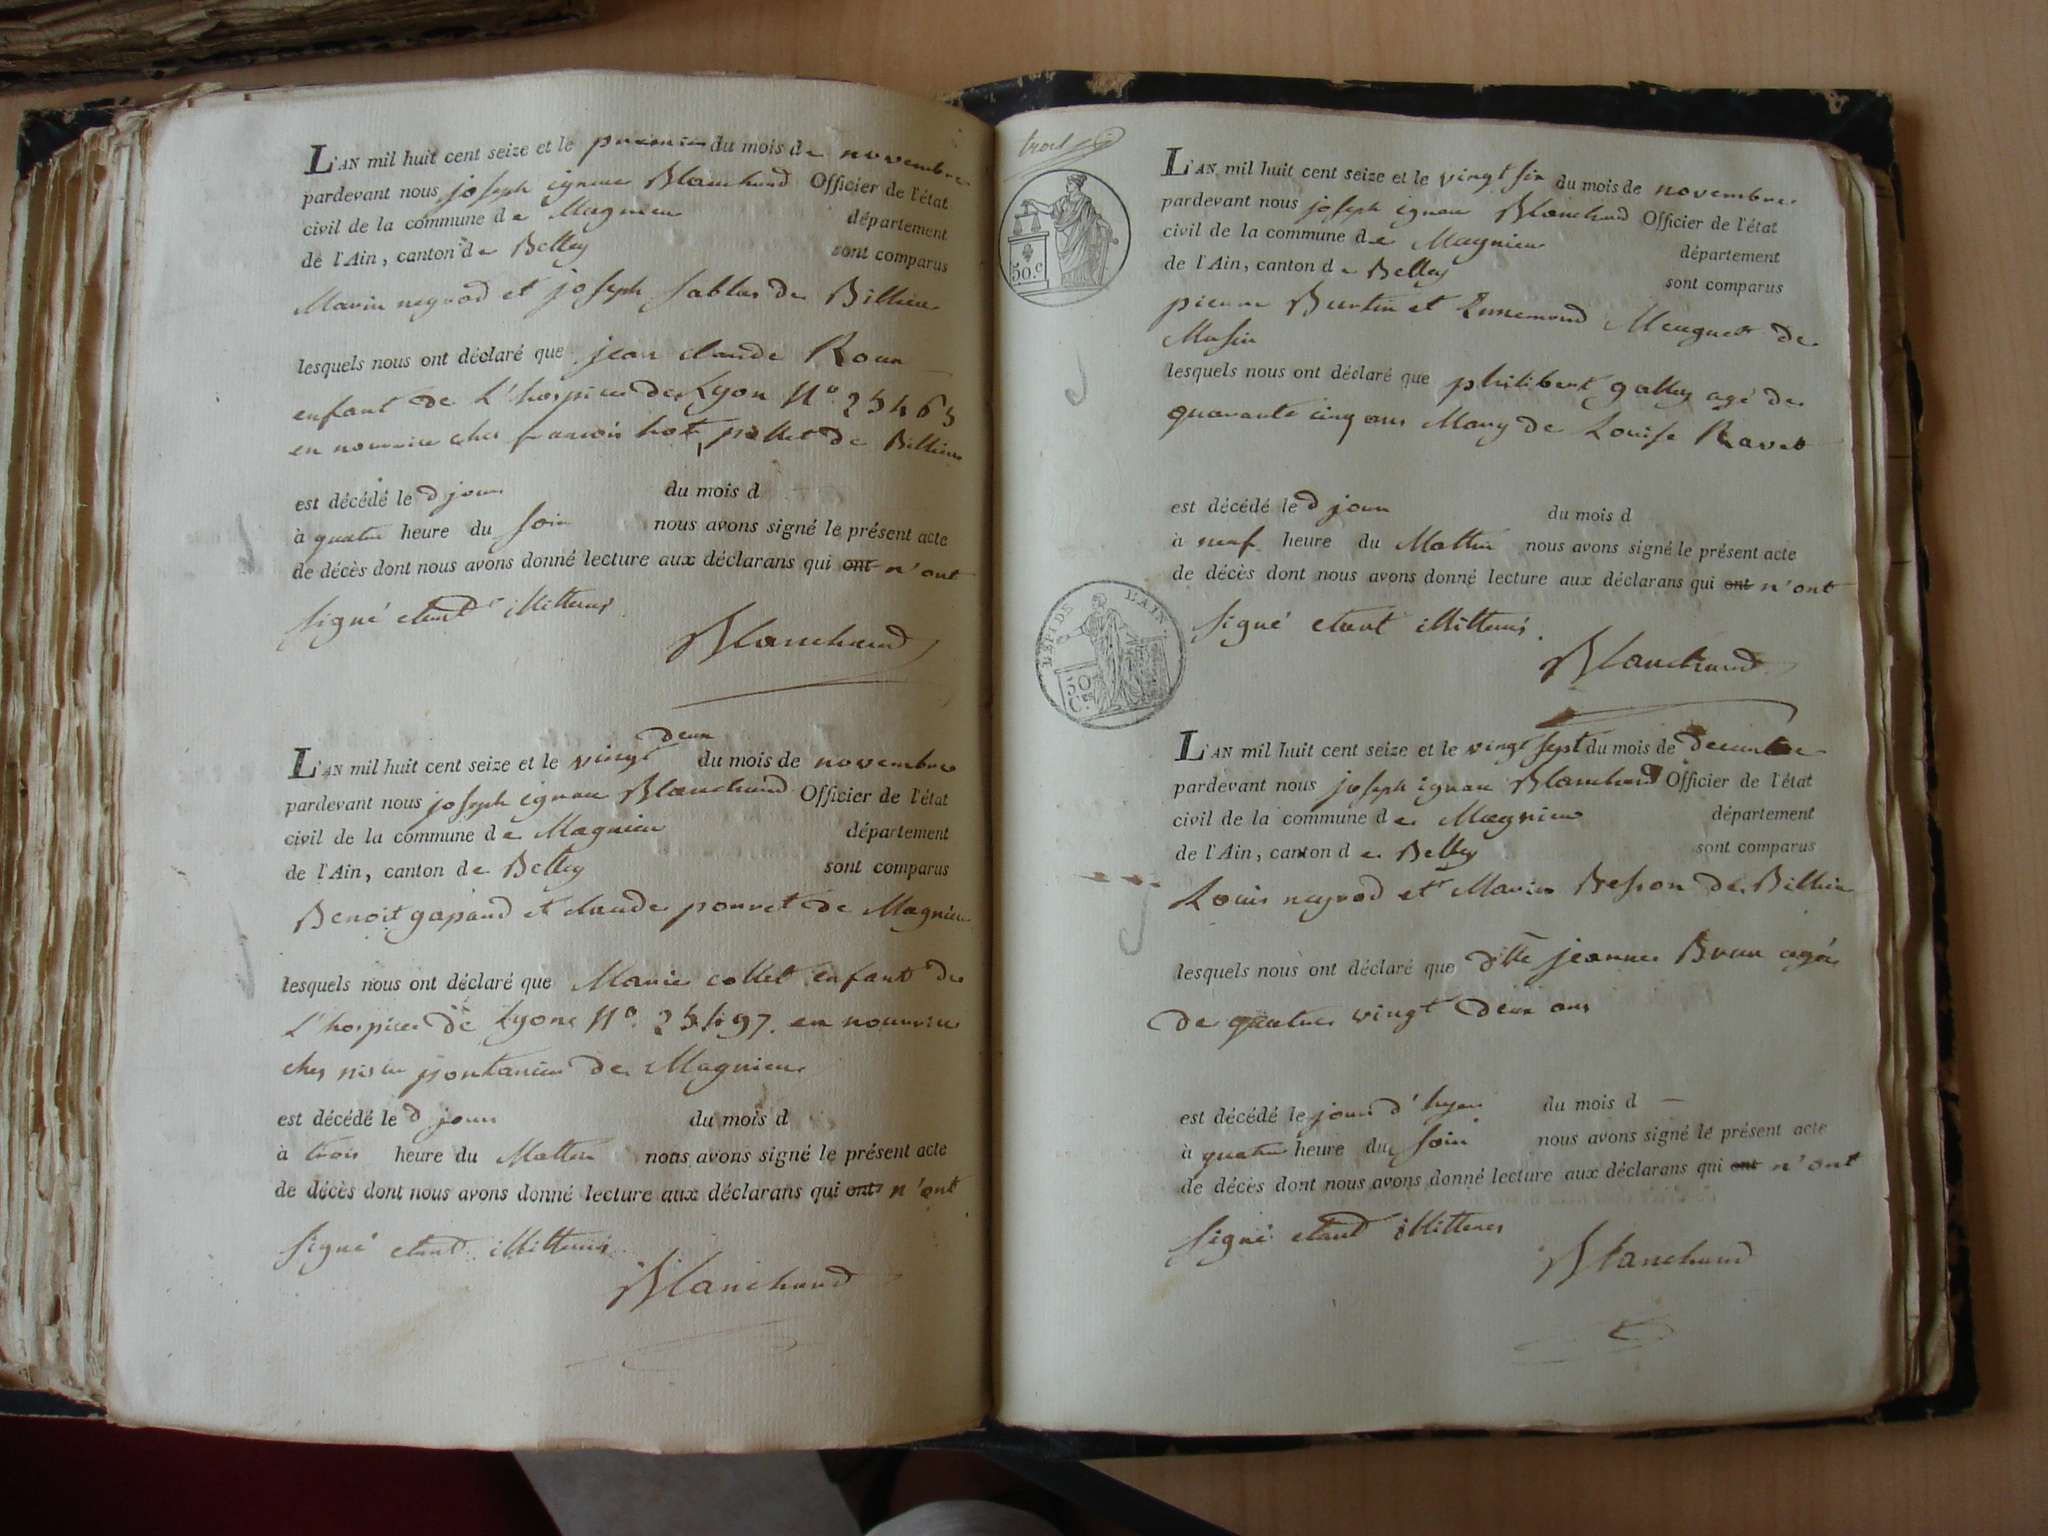 L'AN mil huit cent seize et le premier du mois de novembre
pardevant nous joseph ignace Blanchard Officier de l'état
civil de la commune de Magnieu département
de l'Ain, canton de Belley sont comparus
Marin neyrod et joseph sablas de Billieu
lesquels nous ont déclaré que jean claude Roux
enfant de L'hospice de Lyon N° 25463
en nourrice chez francois hot pollet de Billieu
est décédé le d jour du mois d
à quatre heure du soir nous avons signé le présent acte
de décès dont nous avons donné lecture aux déclarans qui ont n'ont
signé etant illitterés
Blanchard
L'AN mil huit cent seize et le vingt deux du mois de novembre
pardevant nous joseph ignace Blanchard Officier de l'état
civil de la commune de Magnieu département
de l'Ain, canton de Belley sont comparus
Benoit gapand et claude pourret de Magnieu
lesquels nous ont déclaré que Marie collet enfant de
L'hospice de Lyon N° 25497 en nourrice
chez pontanier de Magnieu
est décédé le d jour du mois d
à trois heure du Mattin nous avons signé le présent acte
de décès dont nous avons donné lecture aux déclarans qui ont n'ont
signé etant illitterés
Blanchard
50.c
L'AN mil huit cent seize et le vingt six du mois de novembre
pardevant nous joseph ignace Blanchard Officier de l'état
civil de la commune de Magnieu département
de l'Ain, canton de Belley sont comparus
pierre Burtin et Ennemond Meugnier de
Musin
lesquels nous ont déclaré que philibert galley agé de
quarante cinq ans Mary de Louise Ravet
est décédé le d jour du mois d
à neuf heure du Mattin nous avons signé le présent acte
de décès dont nous avons donné lecture aux déclarans qui ont n'ont
signé etant illitterés
Blanchard
DEP. DE L'AIN.
50 C.es
L'AN mil huit cent seize et le vingt sept du mois de decembre
pardevant nous joseph ignace Blanchard Officier de l'état
civil de la commune de Magnieu département
de l'Ain, canton de Belley sont comparus
Louis neyrod et Marin Besson de Billieu
lesquels nous ont déclaré que dlle jeanne Brun agée
de quatre vingt deux ans
est décédé le jour d'hyer du mois d
à quatre heure du soir nous avons signé le présent acte
de décès dont nous avons donné lecture aux déclarans qui ont n'ont
signé etant illitteres
Blanchard